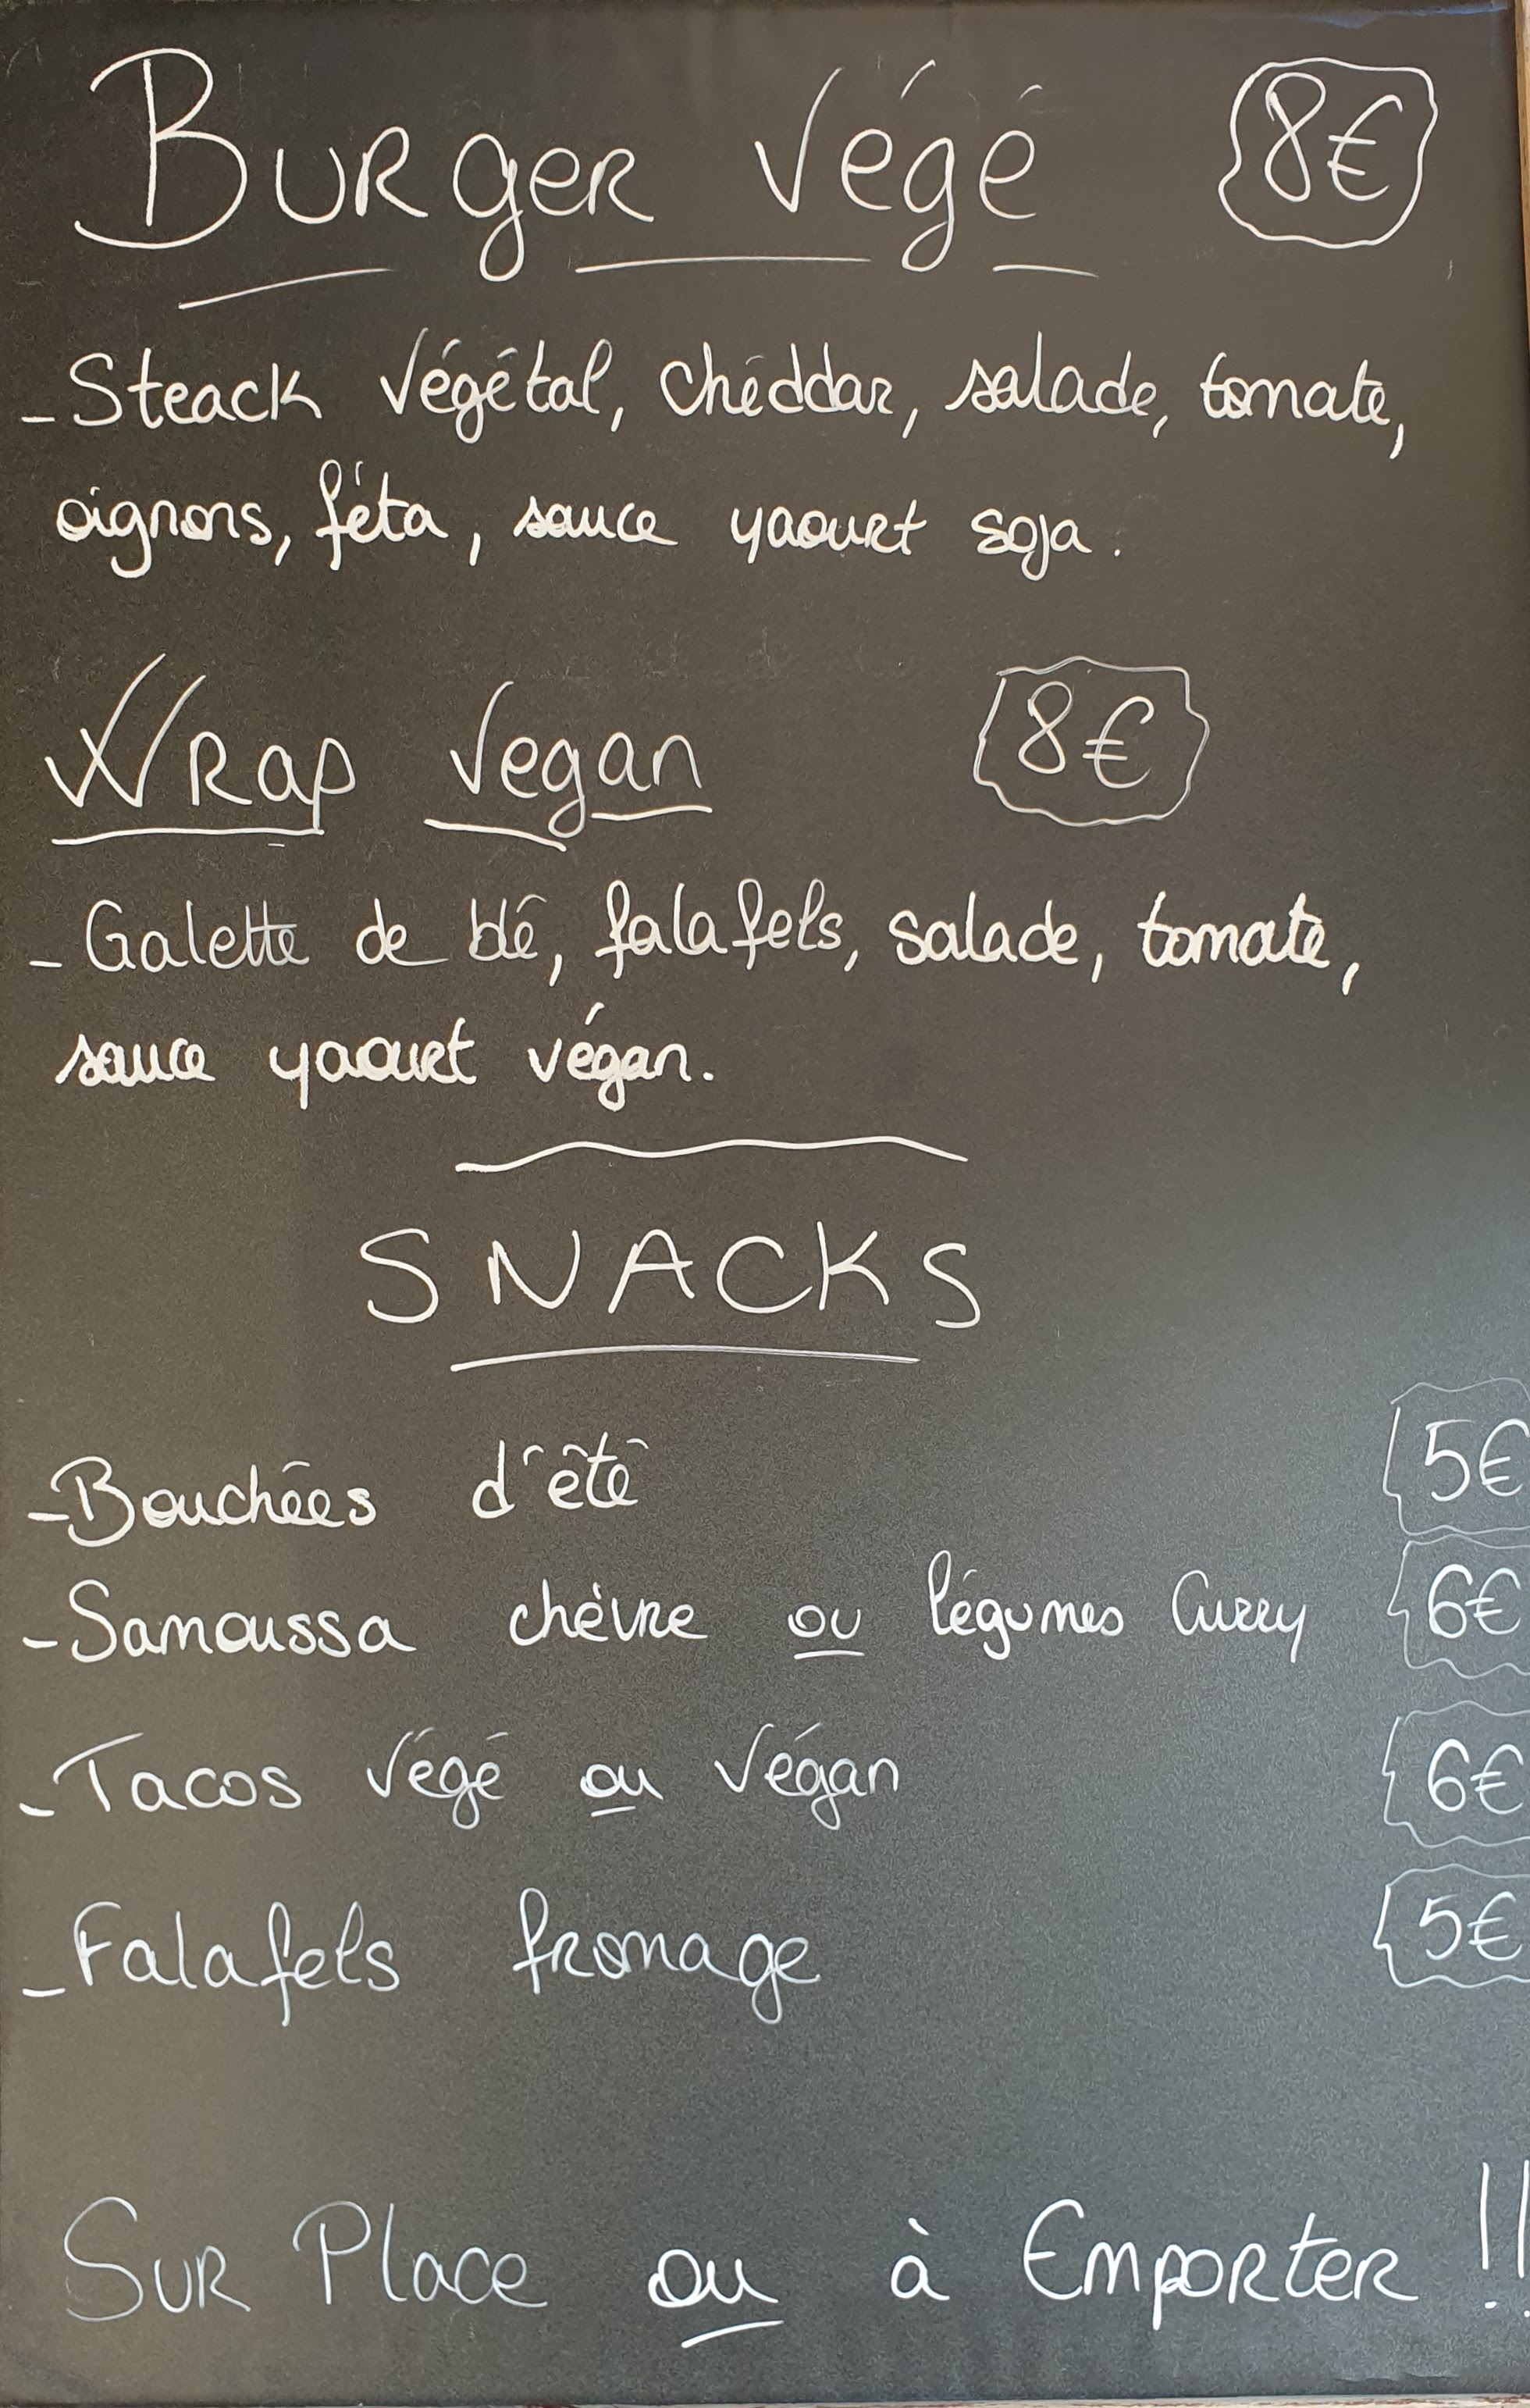 Burger végé 8€
- Steack végétal, chéddar, salade, tomate,
oignons, féta, sauce yaourt soja.
Wrap vegan 8€
- Galette de blé, falafels, salade, tomate,
sauce yaourt végan.
SNACKS
- Bouchées d'été 5€
- Samoussa chèvre ou légumes Curry 6€
- Tacos végé ou végan 6€
- Falafels fromage 5€
Sur Place ou à Emporter !!